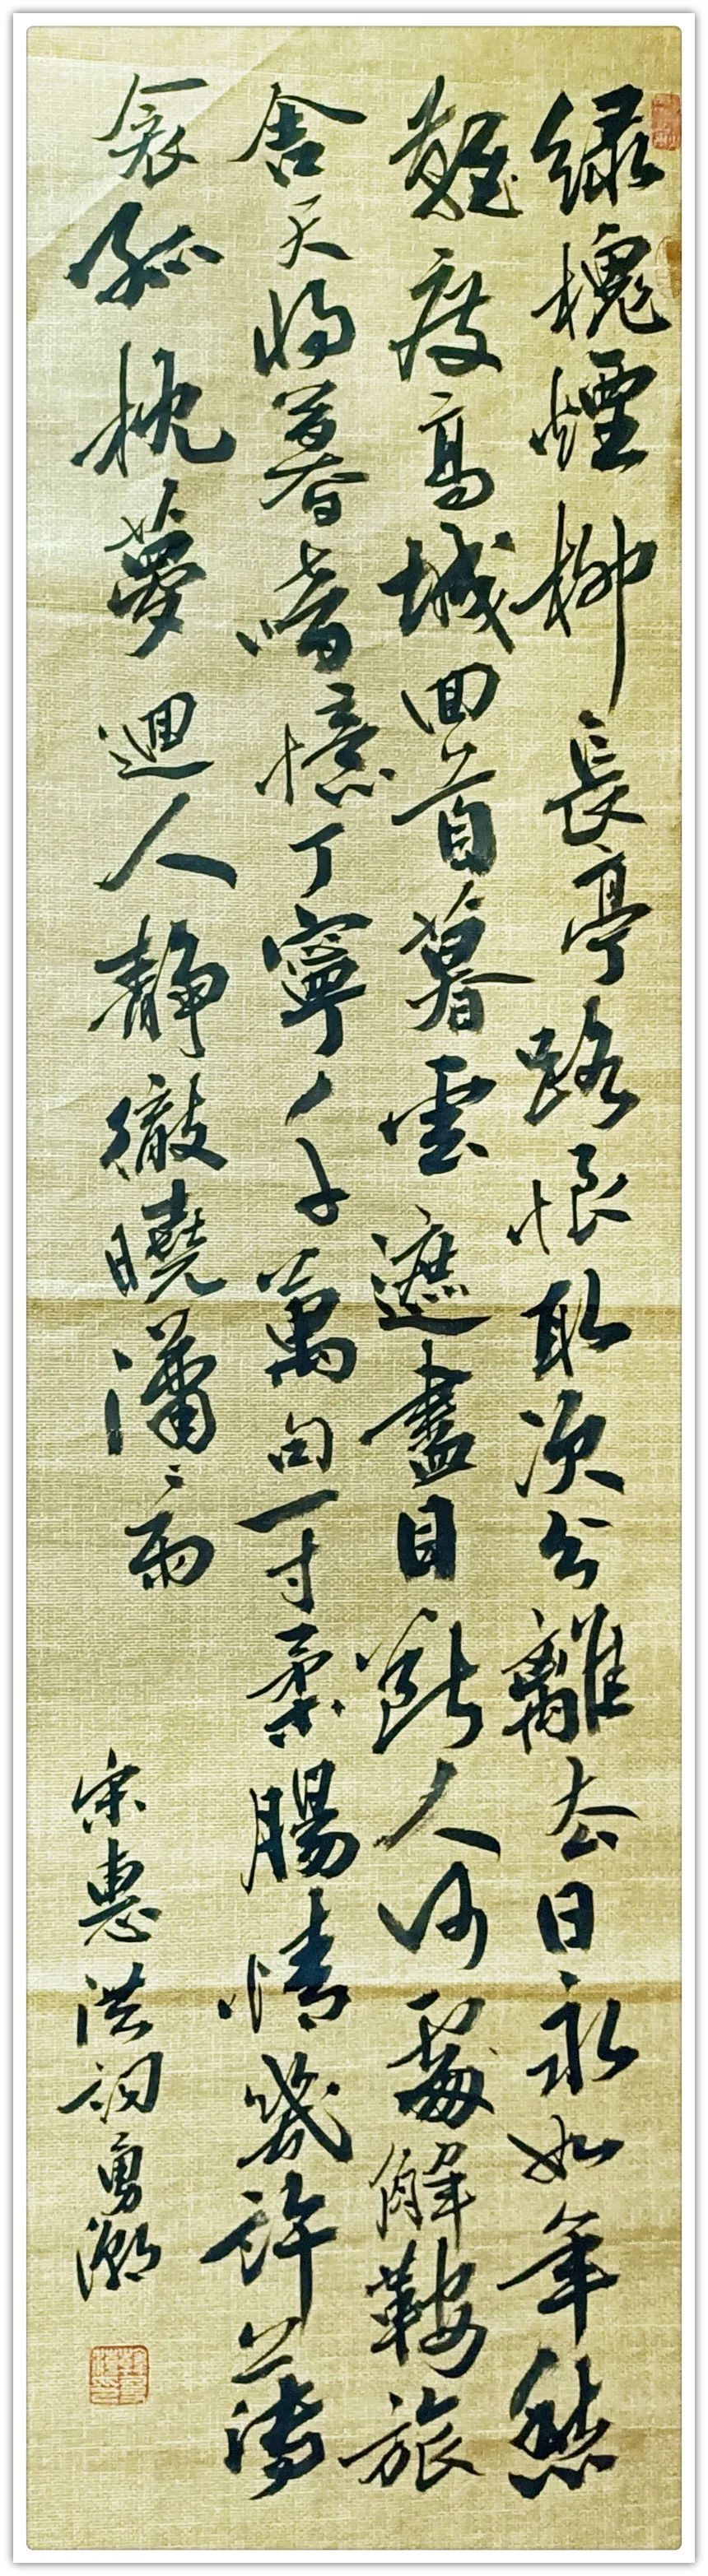 綠槐煙柳長亭路恨取次分離去日永如年愁
難度高城回首暮雲遮盡目斷人何處解鞍旅
舍天將暮暗憶丁寧千萬句一寸柔腸情幾許薄
衾孤枕夢迴人靜徹曉瀟〻雨
宋惠洪詞勇